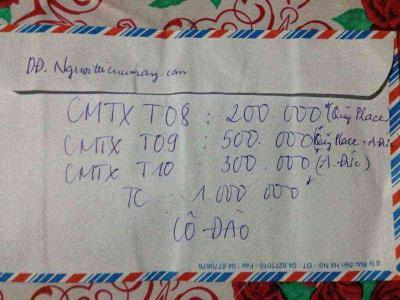 DĐ. Nguoitaicuumang.com
CMTX T08 : 200 000đ Quỹ Place
CMTX T09 : 500.000đ Quỹ Place + A.Đức
CMTX T10 : 300.000đ (A. Đức)
TC : 1.000 000đ
CÔ ĐÀO
g ty Bưu điện Hà Nội - ĐT: 04.8271010 - Fax: 04.8770676